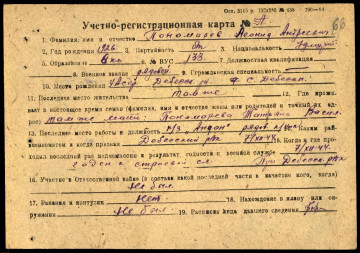 Учетно-регистрационная карта № А.
66
1. Фамилия, имя и отчество Пономарев Леонид Андреевич
2. Год рождения 1926 3. Партийность б/п 4. Национальность удмурт
5. Образование 6 кл. 6. № ВУС 133 7. Должностная квалификация
8. Военное звание рядовой 9. Гражданская специальность
10. Место рождения УАССР, Дебесск. с. Дебесы
11. Последнее место жительства там же 12. Где прожи-
вает в настоящее время семья (фамилия, имя и отчество жены или родителей и точный их ад-
рес) там же мать Пономарева Татьяна Васил.
13. Последнее место работы и должность к/з рядов. к/з 14. Каким рай-
военкоматом и когда призван Дебесский рвк 15. Когда и где про-
ходил последний раз медкомиссию и результат, годность к военной службе
Годен к строевой сл. При Дебесс. рвк
16. Участие в Отечественной войне (в составе какой последней части в качестве кого, когда)
Не был
17. Ранения и контузии нет 18. Нахождение в плену или ок-
ружении Не был 19. Расписка лица давшего сведения